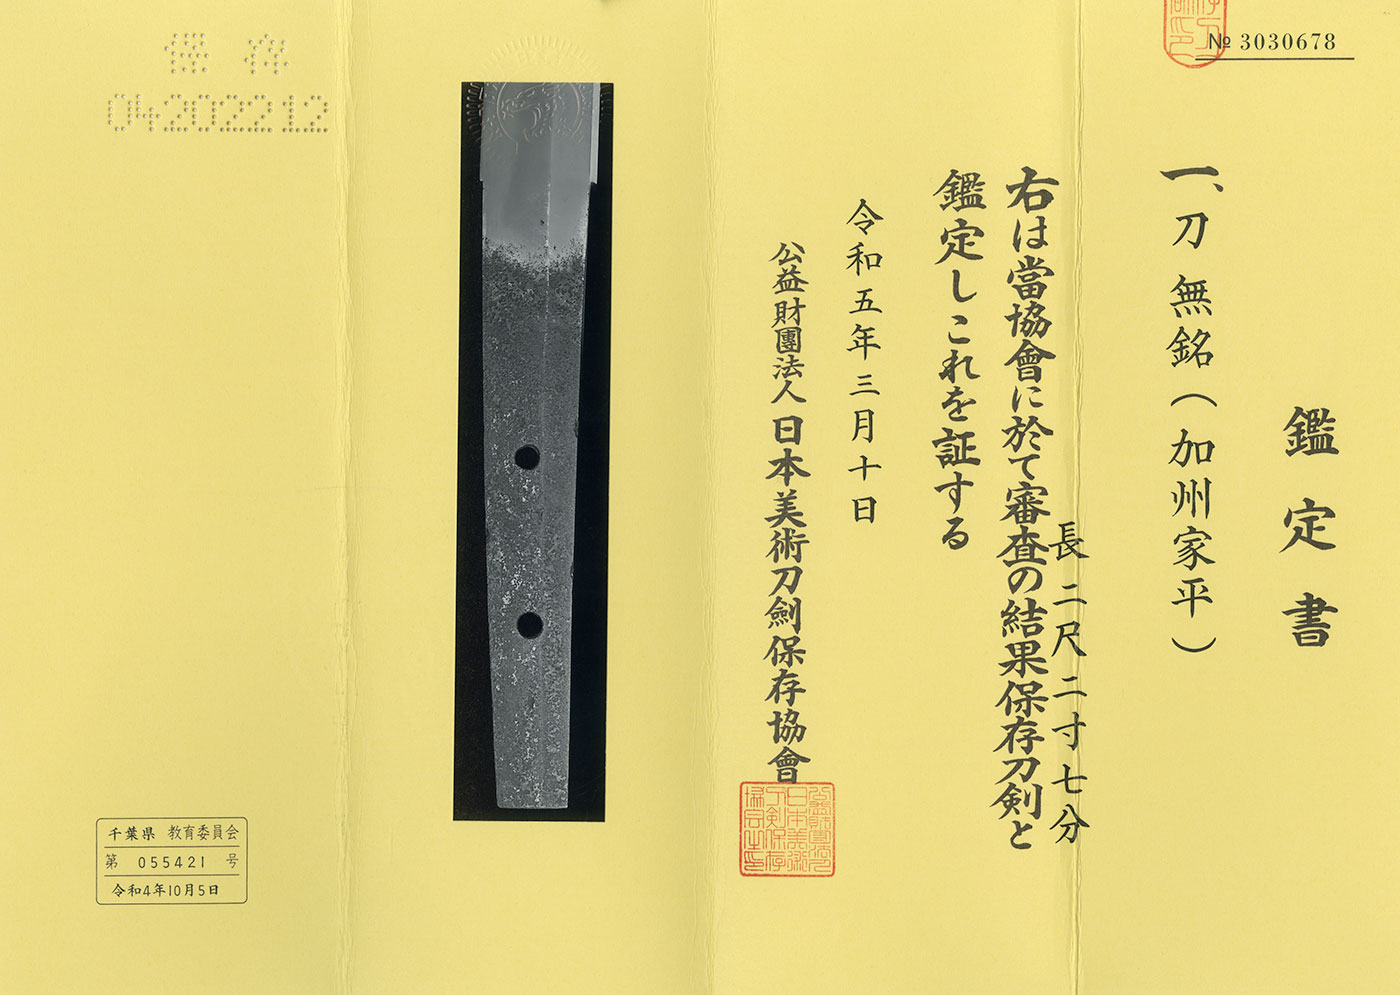 № 3030678
鑑定書
一、刀 無銘（加州家平）
長 二尺二寸七分
右は當協會に於て審査の結果保存刀剣と
鑑定しこれを証する
令和五年三月十日
公益財團法人 日本美術刀劍保存協會
保存
04202212
千葉県 教育委員会
第 055421 号
令和4年10月5日